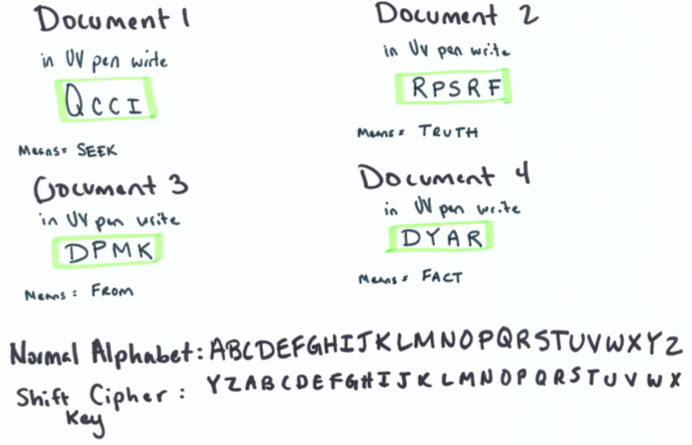 Document 1
in UV pen write
QCCI
Means= SEEK
Document 2
in UV pen write
RPSRF
Means= TRUTH
Document 3
in UV pen write
DPMK
Means: FROM
Document 4
in UV pen write
DYAR
Means= FACT
Normal Alphabet: ABCDEFGHIJKLMNOPQRSTUVWXYZ
Shift Cipher: YZABCDEFGHIJKLMNOPQRSTUVWX
Key